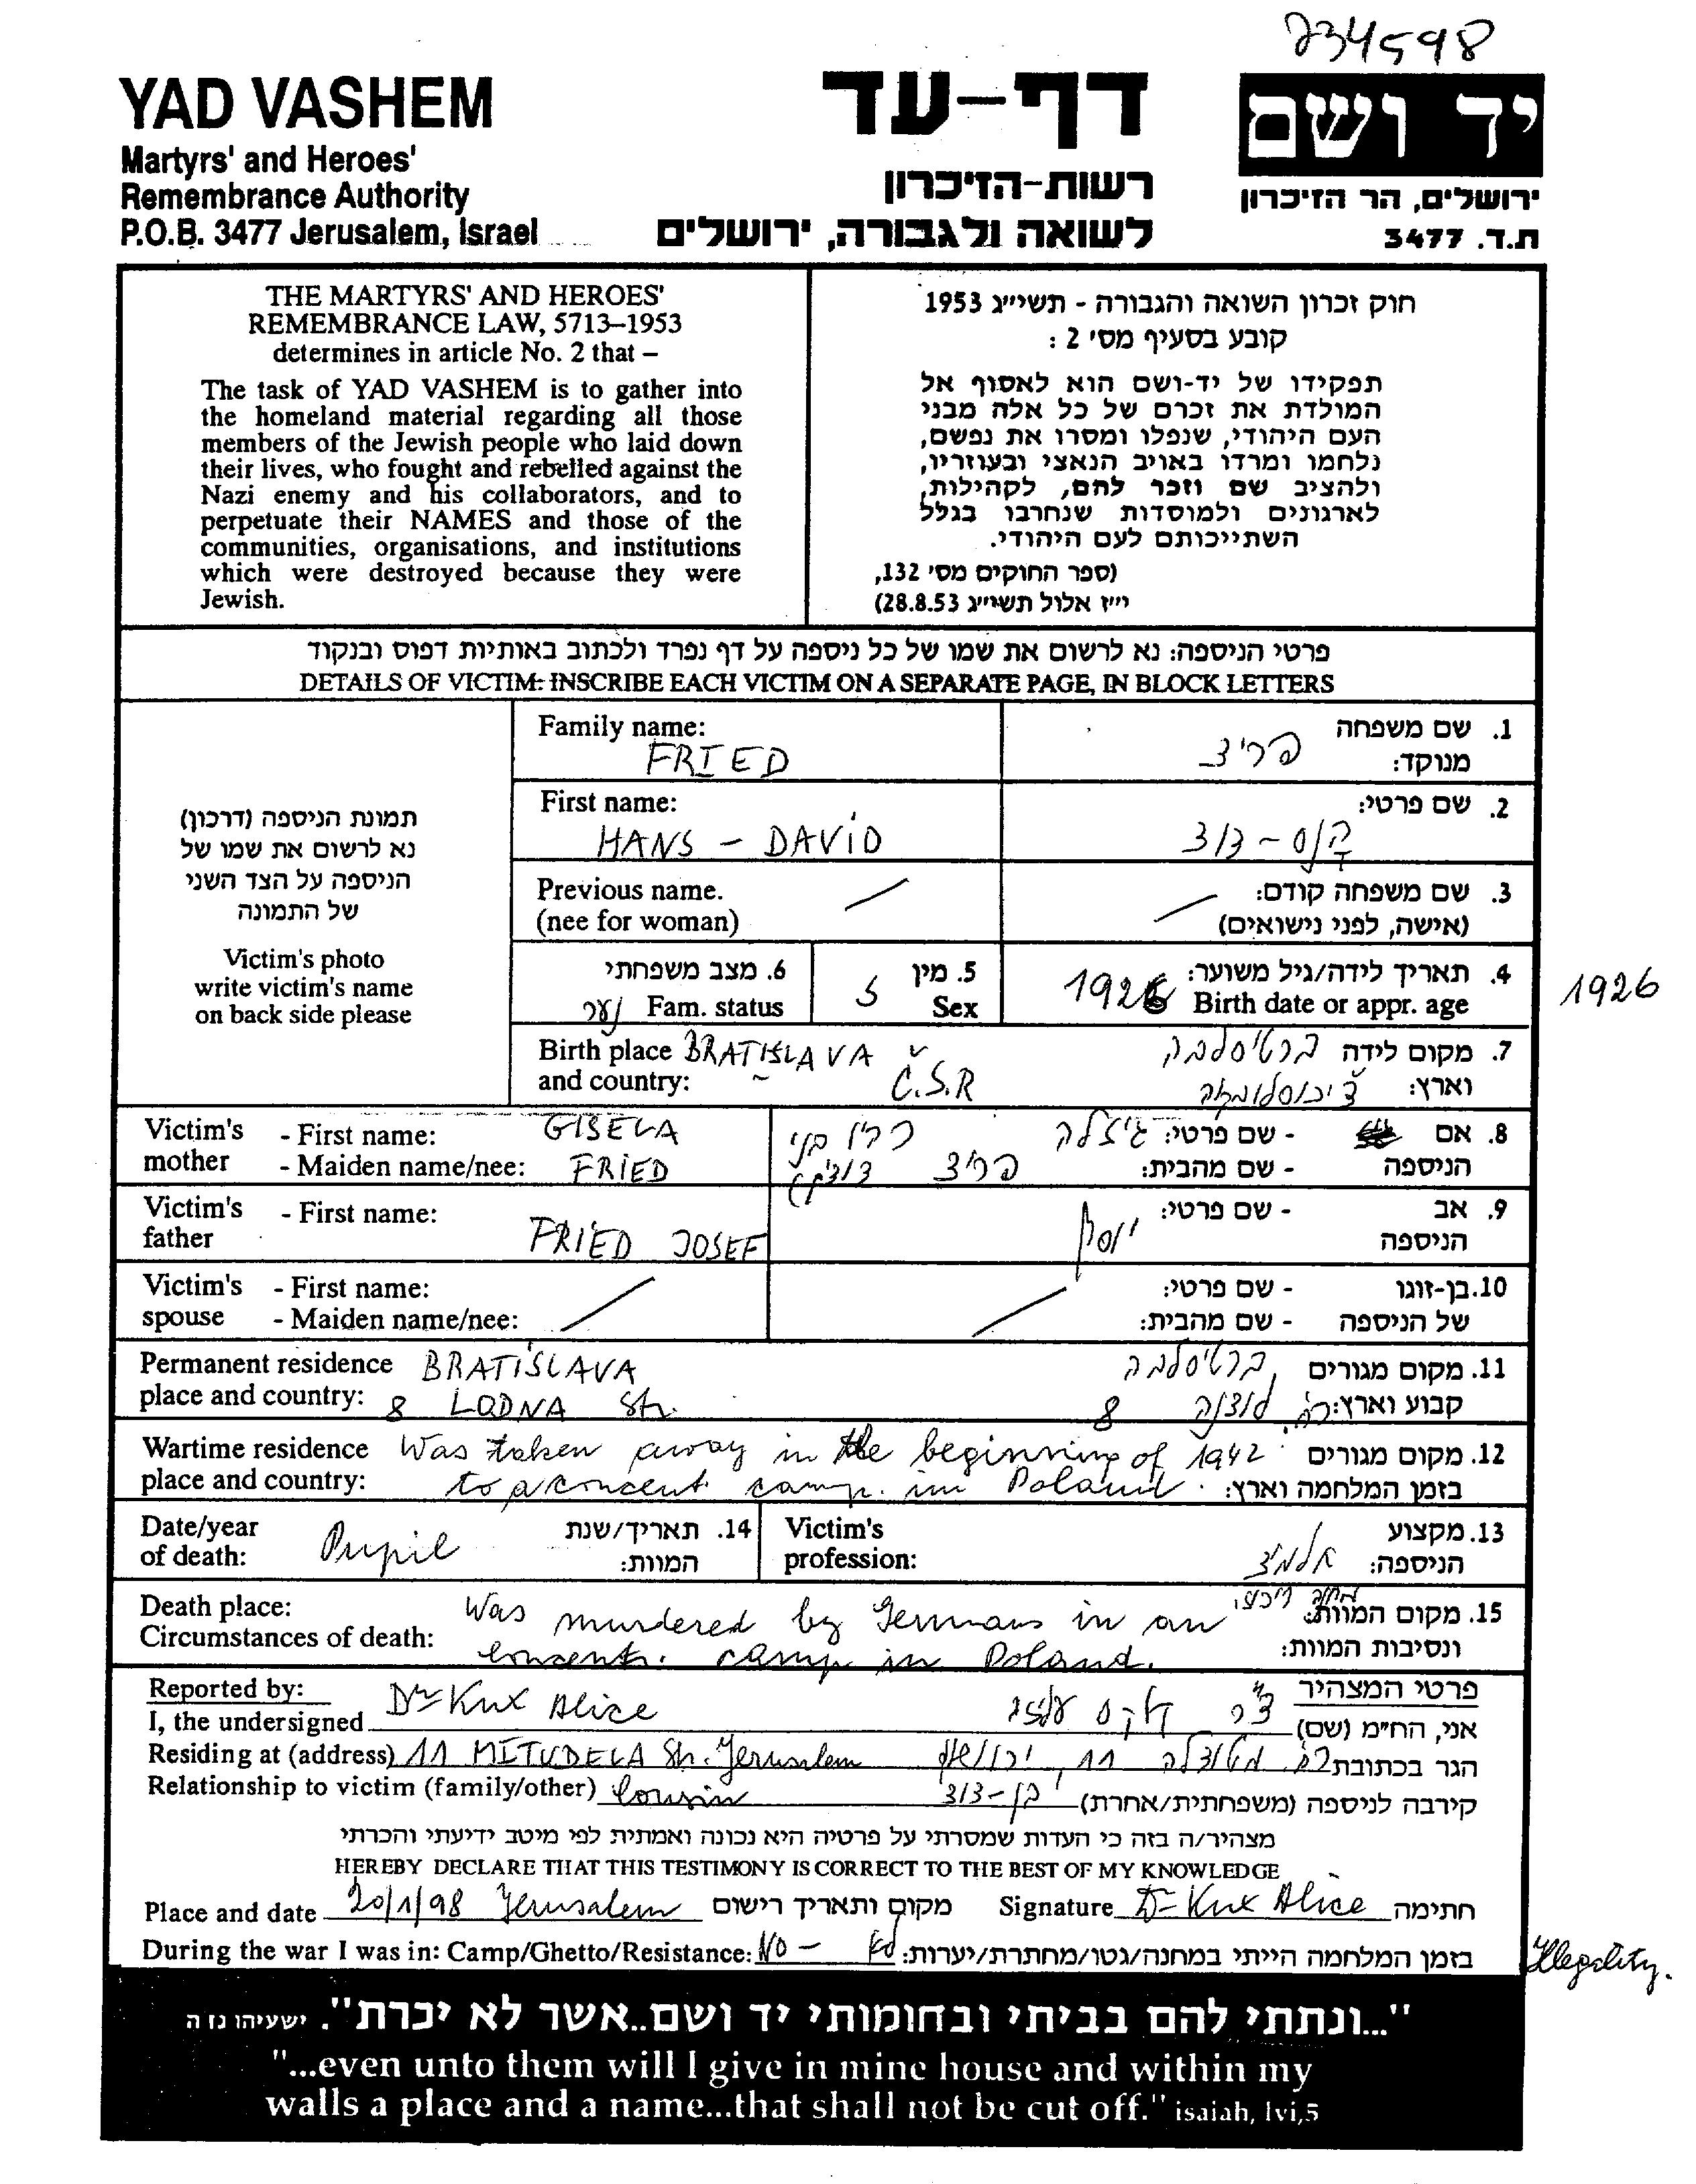 234598
YAD VASHEM
Martyrs' and Heroes'
Remembrance Authority
P.O.B. 3477 Jerusalem, Israel
דף-עד
רשות-הזיכרון
לשואה ולגבורה, ירושלים
יד ושם
ירושלים, הר הזיכרון
ת.ד. 3477
THE MARTYRS' AND HEROES'
REMEMBRANCE LAW, 5713–1953
determines in article No. 2 that –
The task of YAD VASHEM is to gather into
the homeland material regarding all those
members of the Jewish people who laid down
their lives, who fought and rebelled against the
Nazi enemy and his collaborators, and to
perpetuate their NAMES and those of the
communities, organisations, and institutions
which were destroyed because they were
Jewish.
חוק זכרון השואה והגבורה - תשי"ג 1953
קובע בסעיף מס' 2 :
תפקידו של יד-ושם הוא לאסוף אל
המולדת את זכרם של כל אלה מבני
העם היהודי, שנפלו ומסרו את נפשם,
נלחמו ומרדו באויב הנאצי ובעוזריו,
ולהציב שם וזכר להם, לקהילות,
לארגונים ולמוסדות שנחרבו בגלל
השתייכותם לעם היהודי.
(ספר החוקים מס' 132,
י"ז אלול תשי"ג 28.8.53)
פרטי הניספה: נא לרשום את שמו של כל ניספה על דף נפרד ולכתוב באותיות דפוס ובנקוד
DETAILS OF VICTIM: INSCRIBE EACH VICTIM ON A SEPARATE PAGE, IN BLOCK LETTERS
תמונת הניספה (דרכון)
נא לרשום את שמו של
הניספה על הצד השני
של התמונה
Victim's photo
write victim's name
on back side please
Family name: 1. שם משפחה
FRIED פריד מנוקד:
First name: 2. שם פרטי:
HANS - DAVID הנס - דוד
Previous name. 3. שם משפחה קודם:
(nee for woman) (אישה, לפני נישואים)
6. מצב משפחתי 5. מין 4. תאריך לידה/גיל משוער:
נער Fam. status Sex 1926 Birth date or appr. age 1926
Birth place BRATISLAVA 7. מקום לידה ברטיסלבה,
and country: Č.S.R וארץ: צ'יכוסלובקיה
Victim's - First name: GISELA 8. אם - שם פרטי: גיזלה
mother - Maiden name/nee: FRIED הניספה - שם מהבית: פריד
Victim's - First name: 9. אב - שם פרטי:
father FRIED JOSEF הניספה יוסף
Victim's - First name: 10. בן-זוגו - שם פרטי:
spouse - Maiden name/nee: של הניספה - שם מהבית:
Permanent residence BRATISLAVA 11. מקום מגורים ברטיסלבה,
place and country: 8 LODNA Str. קבוע וארץ: רח' לודנה 8
Wartime residence Was taken away in the beginning of 1942 12. מקום מגורים
place and country: to a concent. camp. in Poland. בזמן המלחמה וארץ:
Date/year 14. תאריך/שנת Victim's 13. מקצוע
of death: Pupil המוות: profession: הניספה: תלמיד
Death place: Was murdered by Germans in an 15. מקום המוות
Circumstances of death: concentr. camp in Poland. ונסיבות המוות:
Reported by: פרטי המצהיר
I, the undersigned Dr Kux Alice אני, הח"מ (שם) ד"ר קוקס עליזה
Residing at (address) 11 MITUDELA Str. Jerusalem הגר בכתובת רח' מטודלה 11, ירושלים
Relationship to victim (family/other) Cousin קירבה לניספה (משפחתית/אחרת) בן-דוד
מצהיר/ה בזה כי העדות שמסרתי על פרטיה היא נכונה ואמתית לפי מיטב ידיעתי והכרתי
HEREBY DECLARE THAT THIS TESTIMONY IS CORRECT TO THE BEST OF MY KNOWLEDGE
Place and date 20/1/98 Jerusalem מקום ותאריך רישום Signature Dr Kux Alice חתימה
During the war I was in: Camp/Ghetto/Resistance: NO - לא בזמן המלחמה הייתי במחנה/גטו/מחתרת/יערות: Illegality.
"...ונתתי להם בביתי ובחומותי יד ושם..אשר לא יכרת". ישעיהו נו ה
"...even unto them will I give in mine house and within my
walls a place and a name...that shall not be cut off." isaiah, lvi,5